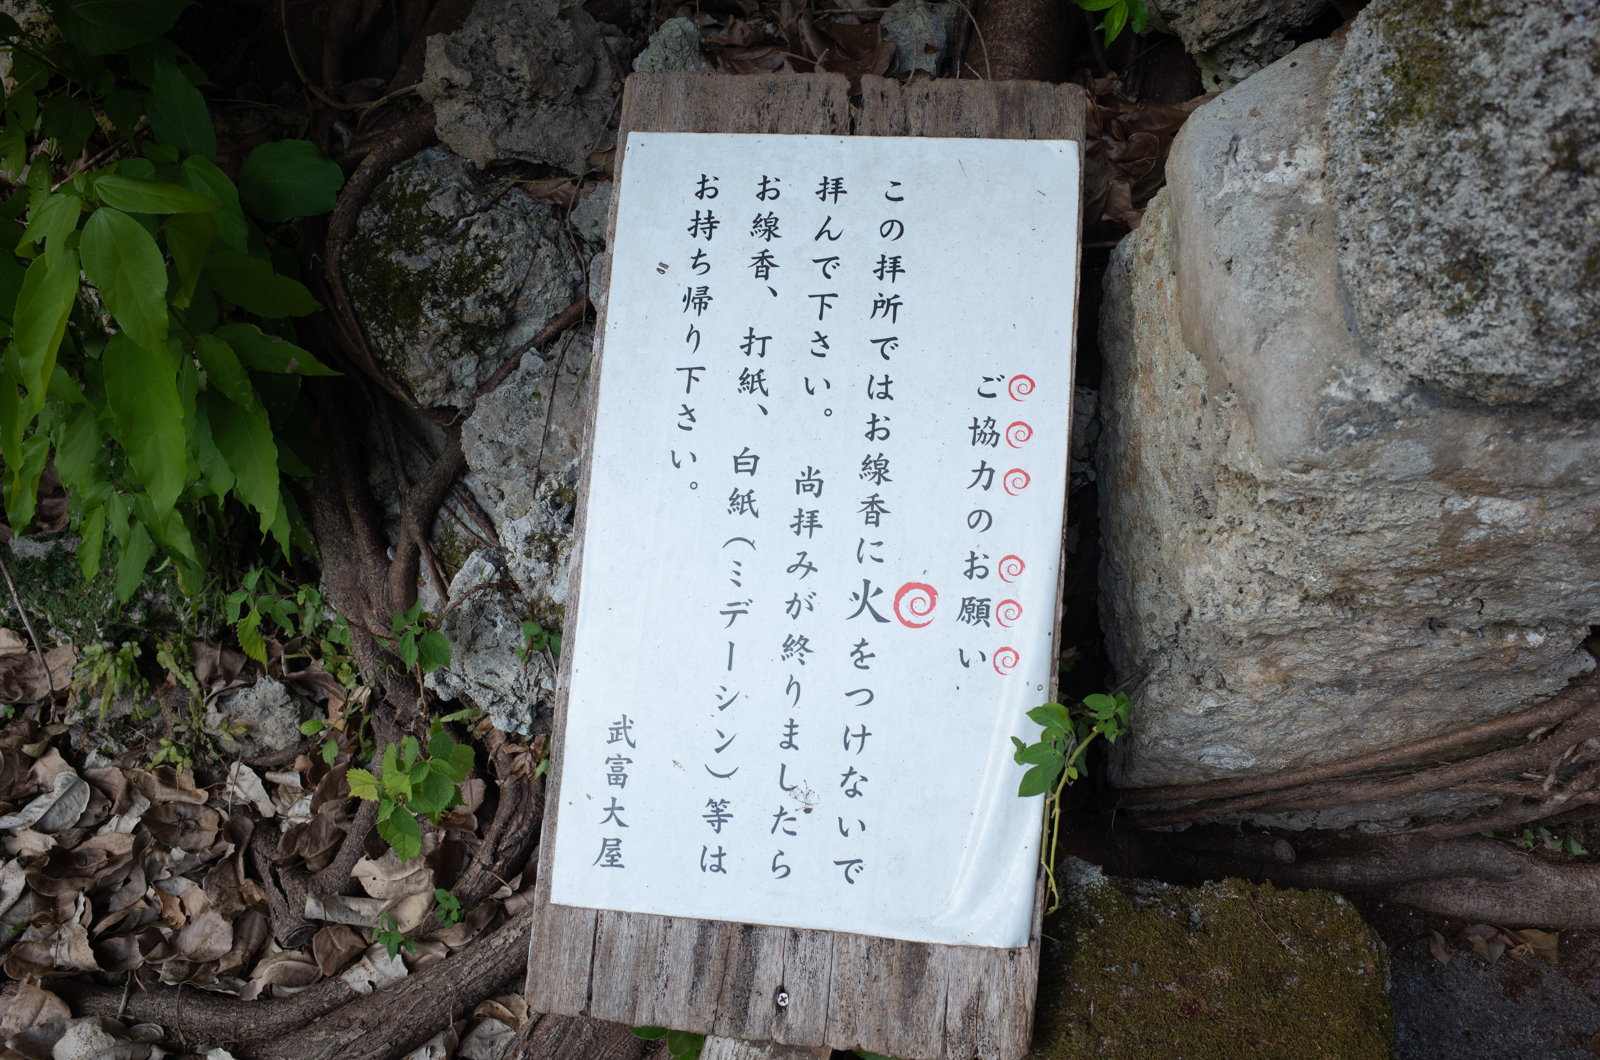 ご協力のお願い
この拝所ではお線香に火をつけないで
拝んで下さい。　尚拝みが終りましたら
お線香、打紙、白紙（ミデーシン）等は
お持ち帰り下さい。
武富大屋